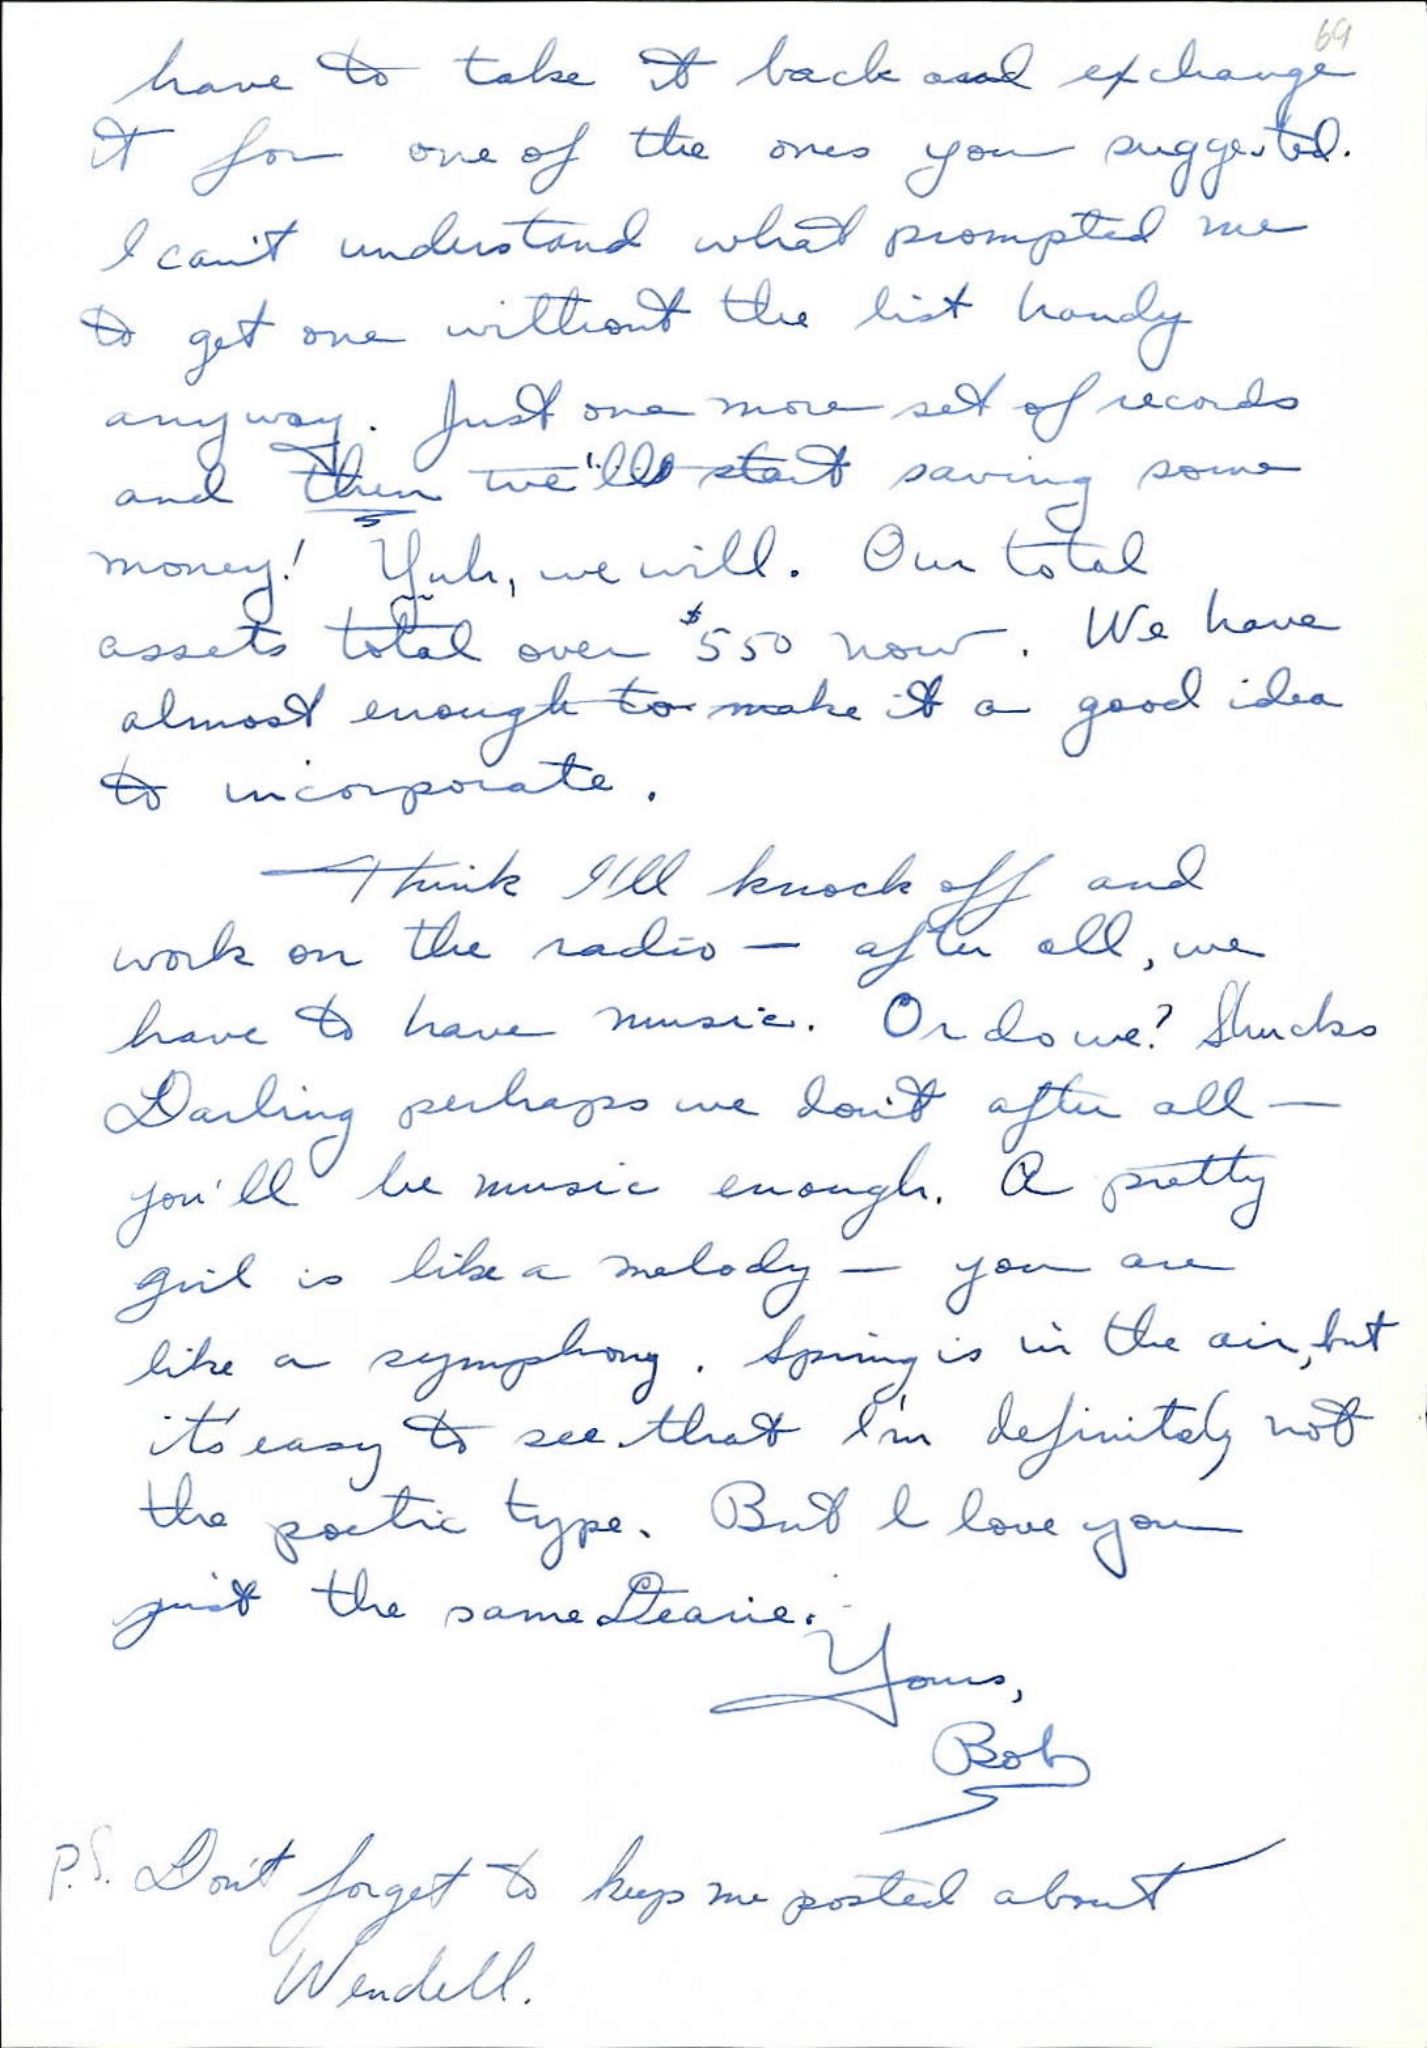 69
have to take it back and exchange
it for one of the ones you suggested.
I can't understand what prompted me
to get one without the list handy
anyway. Just one more set of records
and then we'll start saving some
money! Yuh, we will. Our total
assets total over $550 now. We have
almost enough to make it a good idea
to incorporate.
Think I'll knock off and
work on the radio — after all, we
have to have music. Or do we? Shucks
Darling perhaps we don't after all —
you'll be music enough. A pretty
girl is like a melody — you are
like a symphony. Spring is in the air, but
it's easy to see that I'm definitely not
the poetic type. But I love you
just the same Dearie.
Yours,
Bob
P.S. Don't forget to keep me posted about
Wendell.